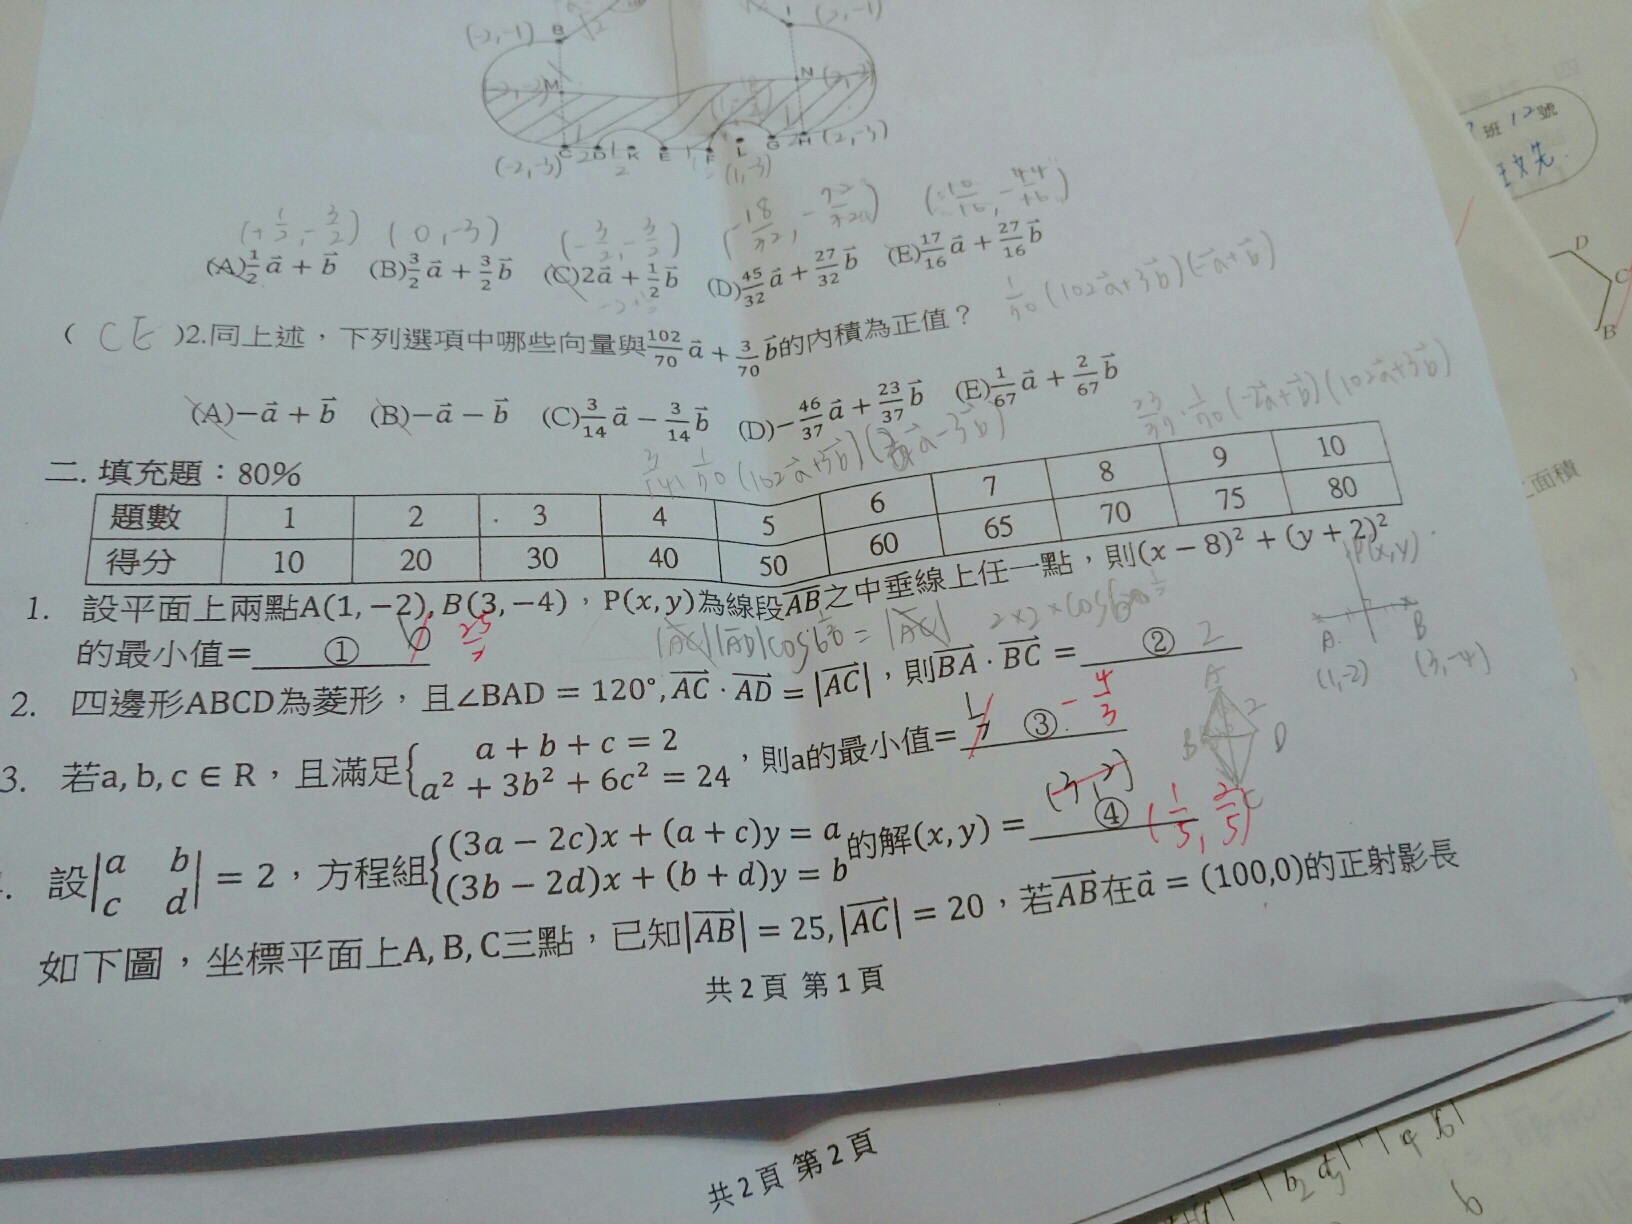 (-2,-1) B
(2,-1)
(-2,-2) M
N (2,-2)
C D K E F L G H (2,-3)
(-2,-3)
(1,-3)
(+1/2,-3/2) (0,-3) (-3/2,-3/2)
(A)1/2 a⃗ + b⃗ (B)3/2 a⃗ + 3/2 b⃗ (C)2a⃗ + 1/2 b⃗ (D)45/32 a⃗ + 27/32 b⃗ (E)17/16 a⃗ + 27/16 b⃗
1/70 (102a⃗+3b⃗)(-a⃗+b⃗)
( CE )2.同上述，下列選項中哪些向量與102/70 a⃗ + 3/70 b⃗的內積為正值？
(A)−a⃗ + b⃗ (B)−a⃗ − b⃗ (C)3/14 a⃗ − 3/14 b⃗ (D)−46/37 a⃗ + 23/37 b⃗ (E)1/67 a⃗ + 2/67 b⃗
23/37 · 1/70 (-2a⃗+b⃗)(102a⃗+3b⃗)
二. 填充題：80%
題數 1 2 3 4 5 6 7 8 9 10
得分 10 20 30 40 50 60 65 70 75 80
1. 設平面上兩點A(1,−2), B(3,−4)，P(x,y)為線段AB之中垂線上任一點，則(x − 8)² + (y + 2)²
的最小值=①
25/2
|AC||AD|cos60 = |AC|
2×2×cos60
P(x,y)
A B
(1,-2) (3,-4)
2. 四邊形ABCD為菱形，且∠BAD = 120°, AC⃗ · AD⃗ = |AC⃗|，則BA⃗ · BC⃗ = ② 2
A
B 2 D
C
3. 若a, b, c ∈ R，且滿足{ a + b + c = 2
a² + 3b² + 6c² = 24，則a的最小值=③ -4/3
設|a b| = 2，方程組{(3a − 2c)x + (a + c)y = a
|c d| (3b − 2d)x + (b + d)y = b的解(x,y) =④ (1/5, 2/5)
如下圖，坐標平面上A, B, C三點，已知|AB⃗| = 25, |AC⃗| = 20，若AB⃗在a⃗ = (100,0)的正射影長
共 2 頁 第 1 頁
共 2 頁 第 2 頁
班 12 號
D
C
B
面積